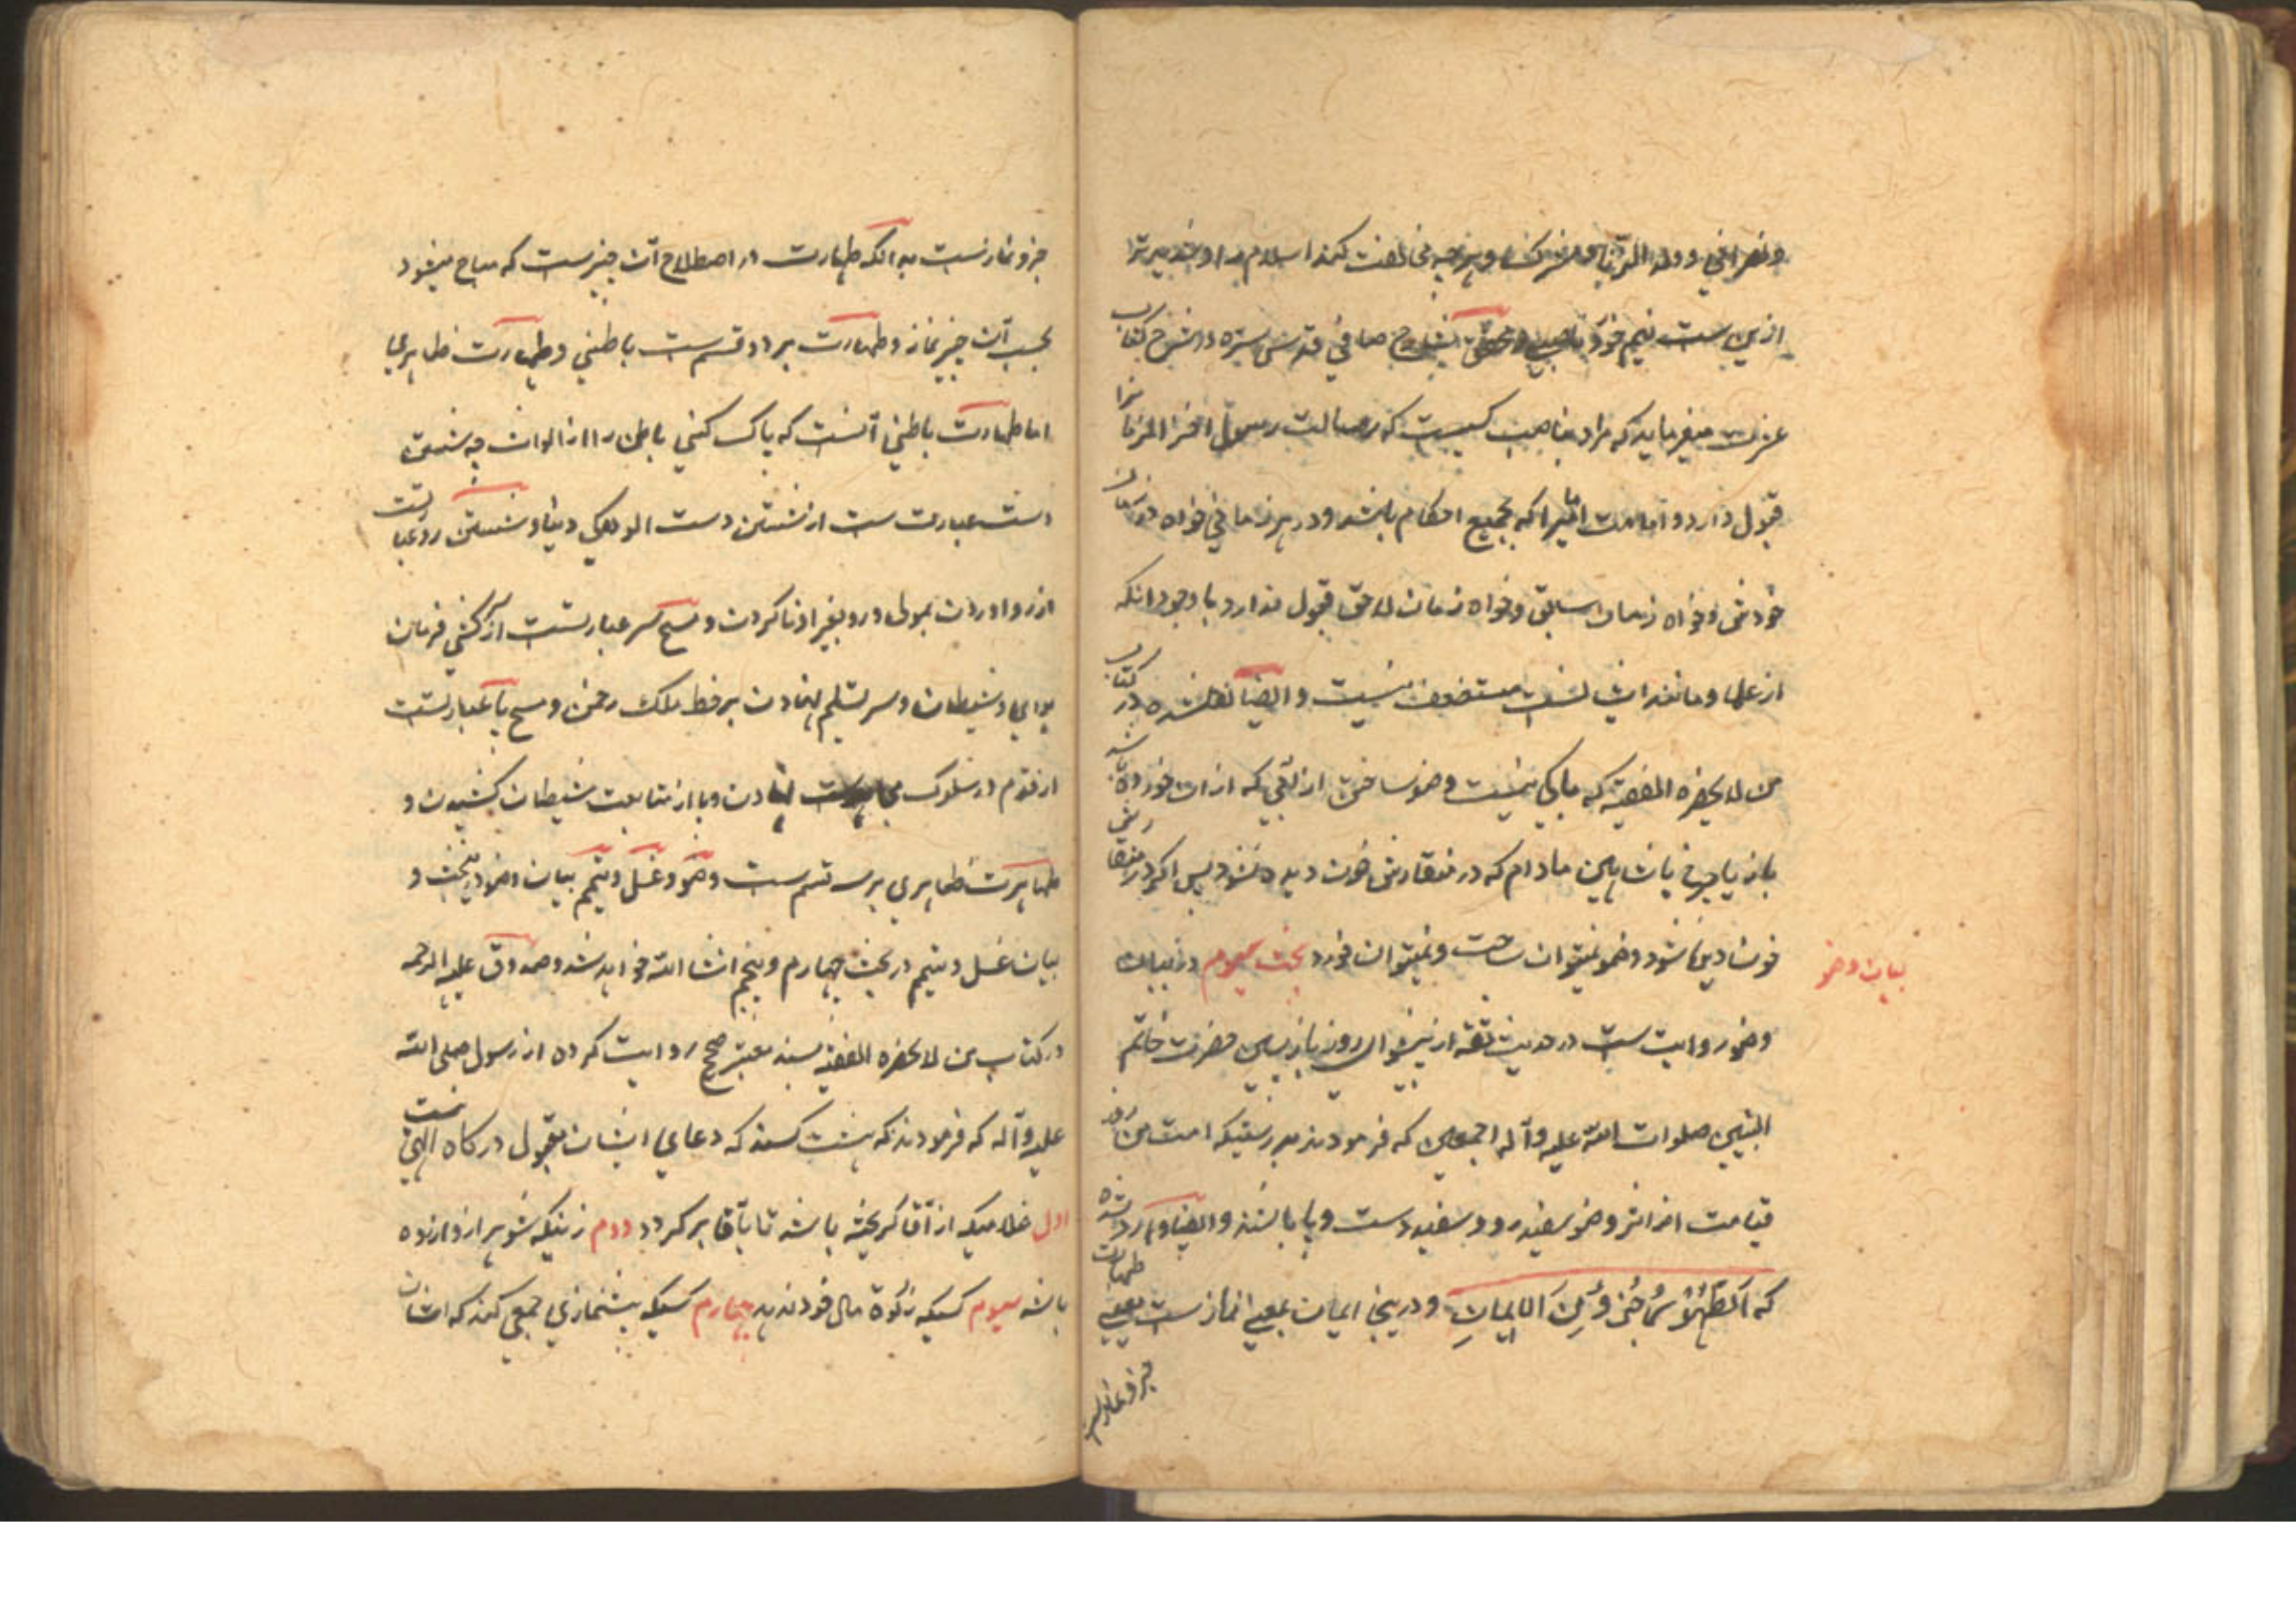 ونصرانی و ولد الزنا و مشرک و هرچه مخالفت کند اسلام را و
ازین است نیم خورد ناصبی صافی قدس سره در شرح کتاب
میفرماید که مراد بناصب کسیست که رسالت رسول آخر الزمانرا
قبول دارد و امامت امامیرا که بجمیع احکام باشد و در هر زمانی خواه در زمان
خودش و خواه زمان سابق و خواه زمان لاحق قبول ندارد با وجود آنکه
از علما و مانند ایشان است مستضعف نیست و ایضا نقلشده در کتاب
من لا یحضره الفقیه که باکی نیست وضو ساختن از آبی که از ان خورده باشد
باز یا چرغ یا شاهین مادام که در منقارش خون دیده نشود پس اکر در منقارش
خون دیده شود وضو نمیتوان ساخت و نمیتوان خورد بحث سیوم در بیان
بیان وضو
وضو روایت ست در حدیث ثقه از پیشوای روز بازپسین حضرت خاتم
النبیین صلوات الله علیه و آله اجمعین که فرمودند بدرستیکه امت من روز
قیامت از اثر وضو سفید رو و سفید دست و پا باشند و ایضا وارد شده
که اَلطَّهُوْرُ جُزْوٌ مِنَ الاِیمَانِ و درینجا ایمان بمعنی نمازست یعنی طهارت
جزو نماز است
جزو نمازست بدانکه طهارت در اصطلاح آن چیزست که مباح میشود
بسبب آن چیز نماز و طهارت بر دو قسم ست باطنی و طهارت ظاهری
اما طهارت باطنی آنست که پاک کنی باطن را از الوان چه شستن
دست عبارت ست از شستن دست الودکی دنیا و شستن رو عبارتست
از رو اوردن بمولی و رو بغیر او ناکردن و مسح سر عبارتست از سرکشی فرمان
هوای و شیطان و سر تسلیم نهادن بر خط ملک رحمن و مسح پا عبارتست
از قدم در سلوک نهادن و پا از متابعت شیطان کشیدن و
طهارت ظاهری بر سه قسم ست وضو و غسل و تیمم بیان وضو درین بحث و
بیان غسل و تیمم در بحث چهارم و پنجم انشا الله خواهد شد و صدوق علیه الرحمه
در کتاب من لا یحضره الفقیه بسند معتبر صحیح روایت کرده از رسول صلی الله
علیه و آله که فرمودند که هشت کسند که دعای ایشان مقبول درکاه الهی نیست
اول غلامیکه از آقا کریخته باشد تا بآقا برکردد دوم زنیکه شوهر ازو ازرده
باشد سیوم کسیکه زکوة مال خود ندهد چهارم کسیکه پیشنمازی جمعی کند که ایشان